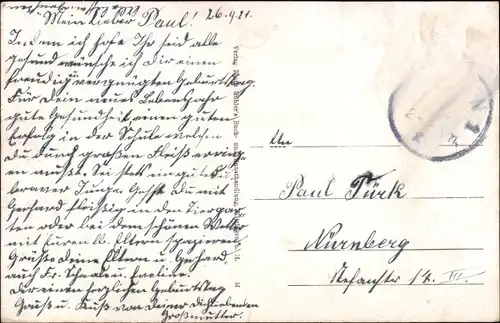 Mein lieber Paul! 26.9.21.
Indem ich hoffe Ihr seid alle
gesund wünsche ich Dir einen
freudig vergnügten Geburtstag.
Für dein neues Lebensjahr
gute Gesundheit einen guten
Erfolg in der Schule welchen
Du durch großen Fleiß errin-
gen mußt. Sei stets ein guter u.
braver Junge. Gehst Du mit
Gerhard fleißig in den Tiergar-
ten oder bei dem schönen Wetter
mit Euren lb. Eltern spazieren
Grüße deine Eltern u. Gerhard,
auch Fr.
Dir einen herzlichen Geburtstag
Gruß u. Kuß von Deiner dichliebenden
Großmutter.
Verlag
An
Paul Türk
Nürnberg
14. III.